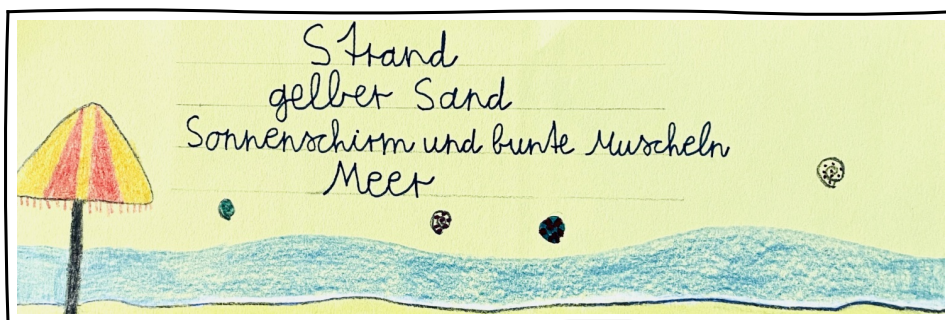 Strand
gelber Sand
Sonnenschirm und bunte Muscheln
Meer